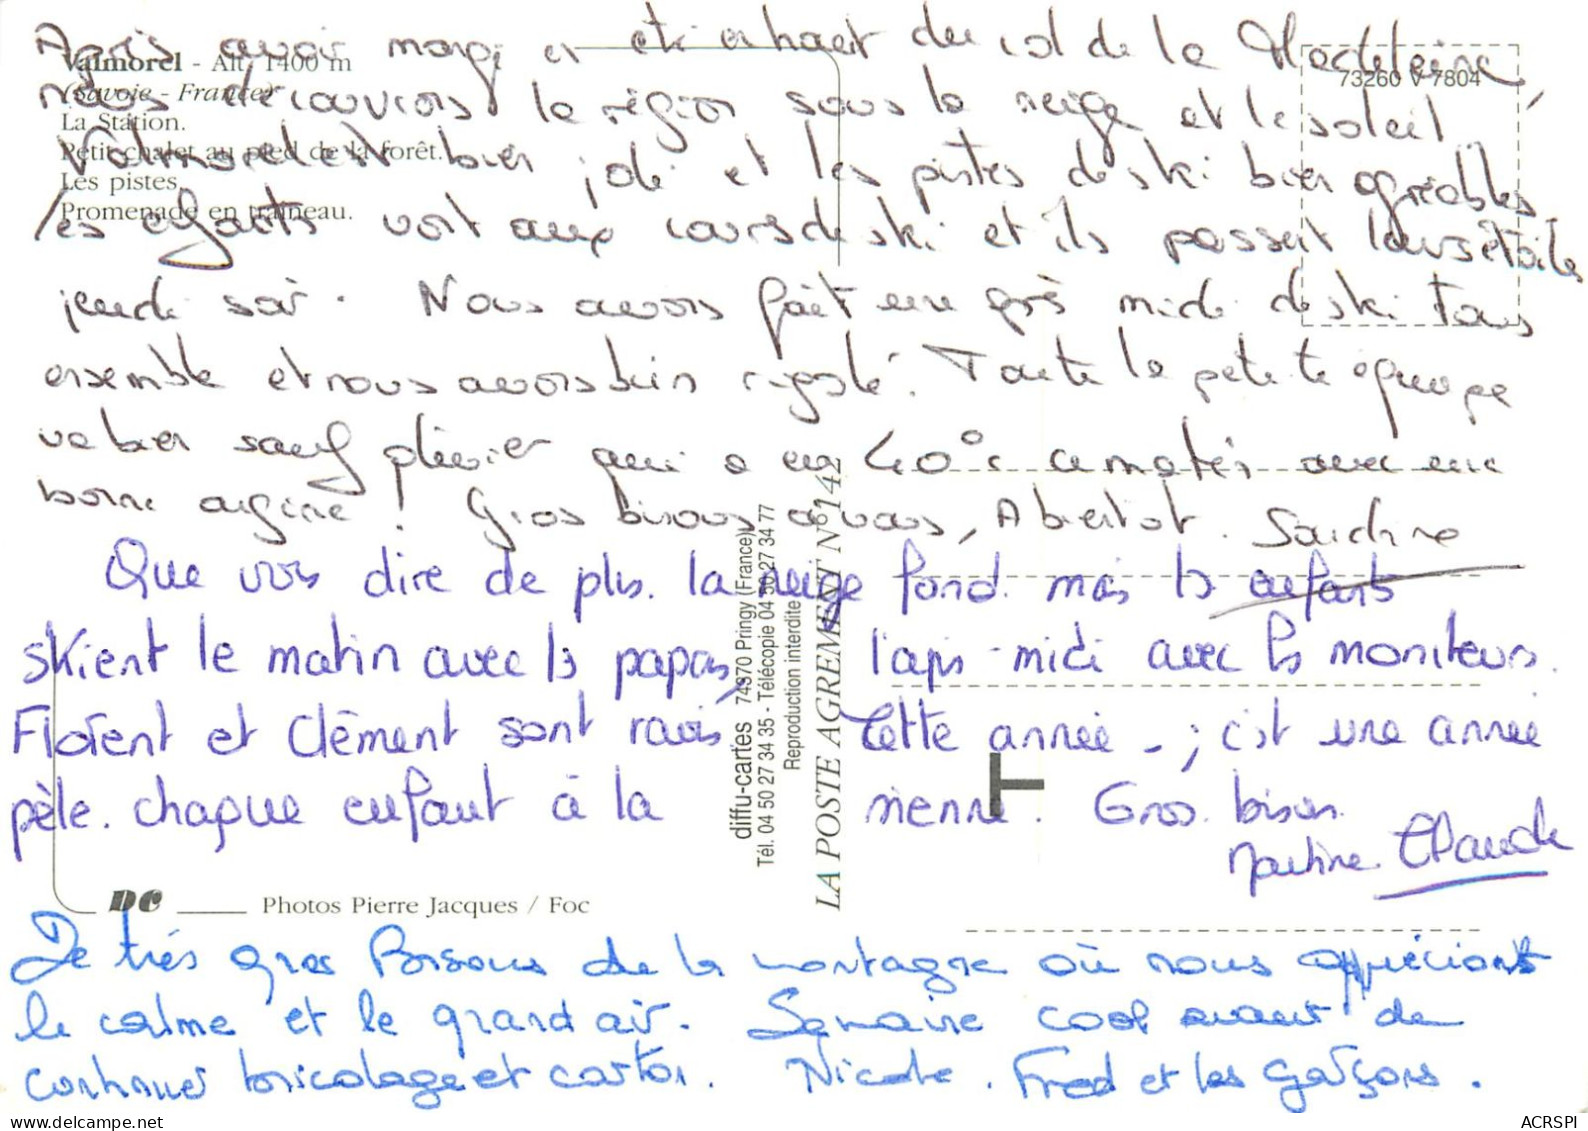 Valmorel - Alt. 1400 m
(Savoie - France)
La Station.
Petit chalet au pied de la forêt.
Les pistes.
Promenade en traîneau.
73260 V 7804
Après avoir mangé en haut du col de la Madeleine,
nous découvrons la région sous la neige et le soleil.
Valmorel est bien joli et les pistes de ski bien agréables
les enfants vont aux cours de ski et ils passent leurs étoiles
jeudi soir. Nous avons fait une après midi de ski tous
ensemble et nous avons bien rigolé. Toute la petite équipe
va bien sauf qui a eu 40° ce matin avec une
bonne angine ! Gros bisous à vous, A bientôt. Sandrine
Que vous dire de plus. la neige fond. mais ls enfants
skient le matin avec ls papas, l'aprs-midi avec ls moniteurs.
Florent et Clément sont ravis Cette année - ; c'est une année
pèle. chaque enfant à la sienne. Gros bisous.
Martine. Claude
diffu-cartes 74370 Pringy (France)
Tél. 04 50 27 34 35 - Télécopie 04 50 27 34 77
Reproduction interdite
LA POSTE AGREMENT N° 14
T
DC Photos Pierre Jacques / Foc
De très gros Bisous de la montagne où nous apprécions
le calme et le grand air. Semaine cool avant de
continuer bricolage et carton. Nicole. Fred et les garçons.
ACRSPI